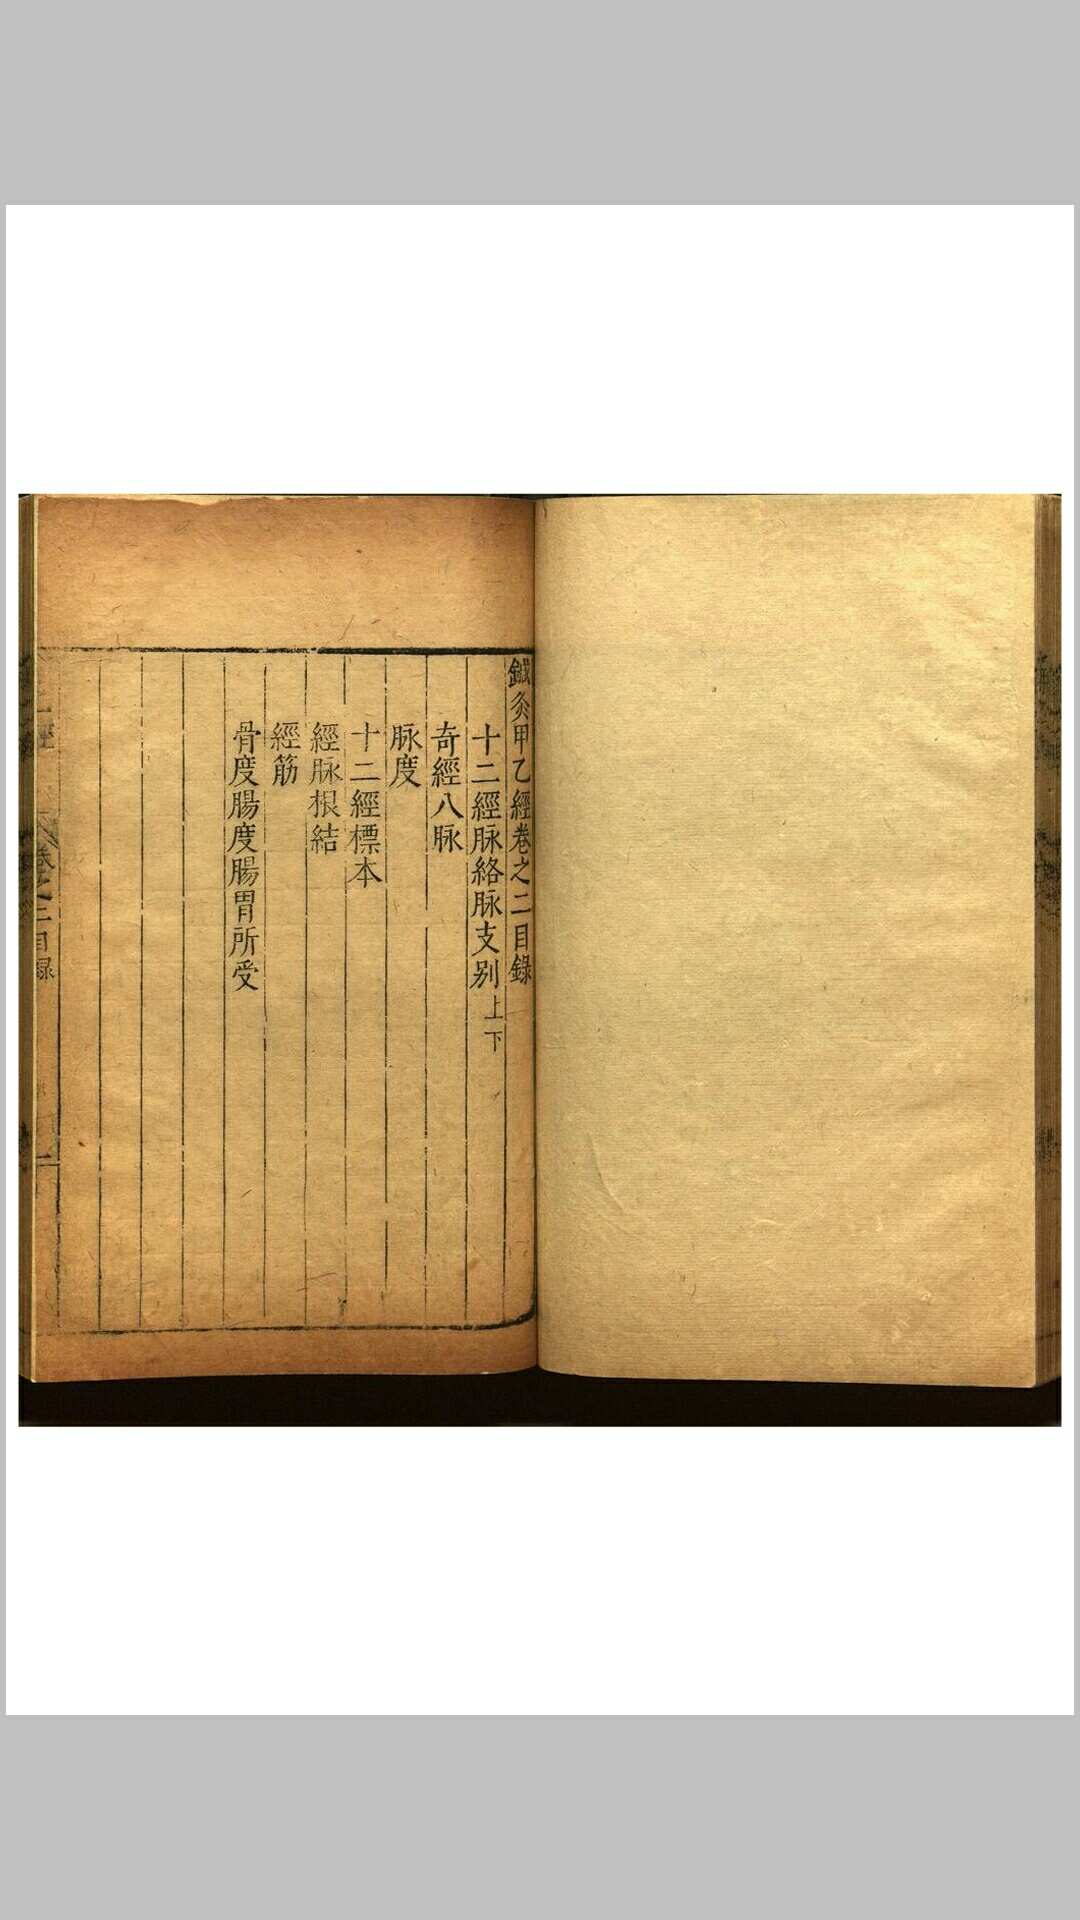 鍼灸甲乙經卷之二目錄
十二經脉絡脉支别上下
奇經八脉
脉度
十二經標本
經脉根結
經筋
骨度腸度腸胃所受
卷之二目録